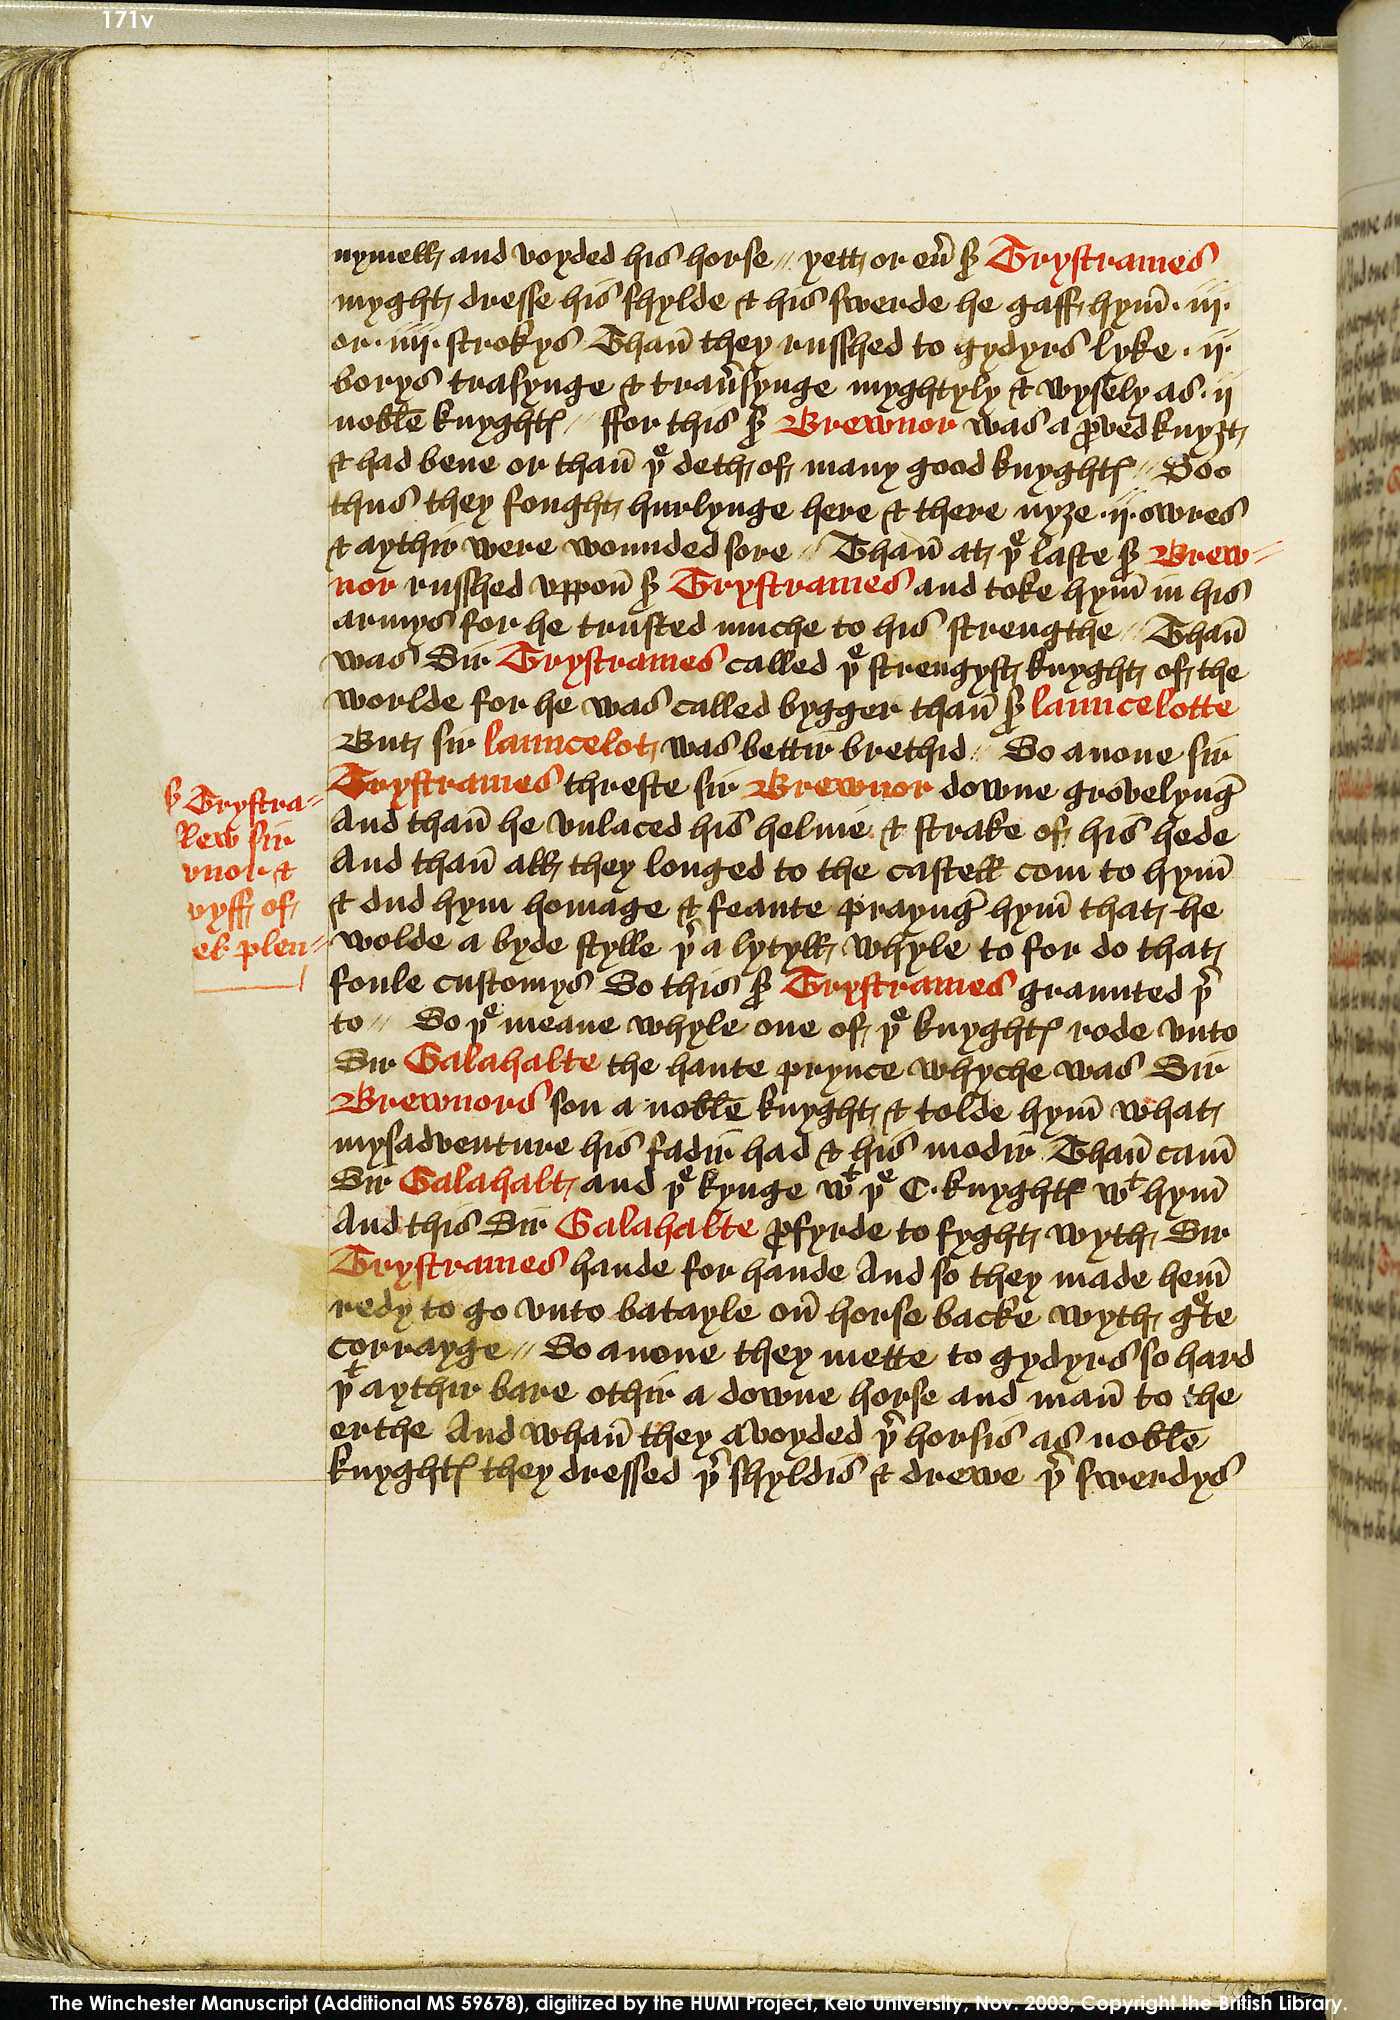 171v
nymell and voyded his horse // yett or eũ sr̃ Trystrames
myght dresse his shylde & his swerde he gaff hym̃ · iij ·
or · iiij · strokys Thañ they russhed to gydyrs lyke · ij ·
borys trasynge & trav̾synge myghtyly & wysely as · ij
noble knyghtꝭ // ffor this sr̃ Brewnor was a ꝓved knyȝt
& had bene or thañ þe deth of many good knyghtꝭ // Soo
thus they fought hurlynge here & there nyȝe · ij · owres
& aythir were wounded sore // Thañ at þe laste sr̃ Brew=
nor russhed vppoñ sr̃ Trystrames and toke hym̃ in his
armys for he trusted muche to his strengthe // Thañ
was Sir Trystrames called þe strengyst knyght of the
worlde for he was called bygger thañ sr̃ launcelotte
But sir launcelot was bettir brethid // So anone sir
Trystrames threste sir Brewnor downe grovelynge
And thañ he vnlaced his helme & strake of his hede
And thañ all they longed to the castell com to hym̃
& dud hym homage & feaute prayng̃ hym̃ that he
wolde a byde stylle þr̃ a lytyll whyle to for do that
foule customys So this sr̃ Trystrames graunted þr̃
to // So þe meane whyle one of þe knyghtꝭ rode vnto
Sir Galahalte the haute prynce whyche was Sir
Brewnors son a noble knyght & tolde hym̃ what
mysadventure his fadir had & his modir Thañ cam̃
Sir Galahalt and þe kynge wt þe C · knyghtꝭ wt hym̃
And this Sir Galahalte ꝓfyrde to fyght wyth Sir
Trystrames hande for hande And so they made hem̃
redy to go vnto batayle oñ horse backe wyth gͬte
corrayge // So anone they mette to gydyrs so hard
þt aythir bare othir a downe horse and mañ to the
erthe And whañ they avoyded þr̃ horsis as noble
knyghtꝭ they dressed þr̃ shyldis & drewe þr̃ swerdys
sr̃ Trystra=
lew sir
vnor &
vyff of
el plen=
The Winchester Manuscript (Additional MS 59678), digitized by the HUMI Project, Keio University, Nov. 2003; Copyright the British Library.